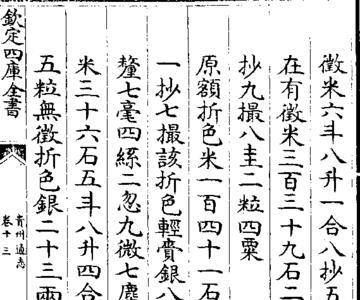 徵米六斗八升一合八抄五
在有徵米三百三十九石二
抄九撮八圭二粒四粟
原額折色米一百四十一石
一抄七撮該折色輕賫銀八
釐七毫四絲二忽九微七塵
米三十六石五斗八升四合
五粒無徵折色銀二十三兩
欽定四庫全書
貴州通志
卷十三